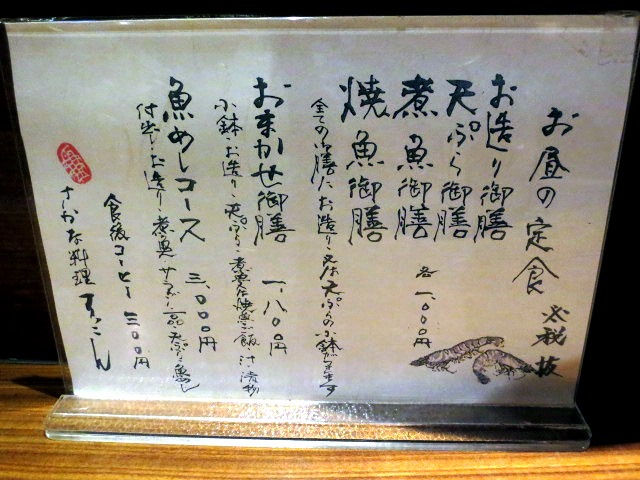 お昼の定食
税抜
お造り御膳
天ぷら御膳
煮魚御膳
各一、〇〇〇円
焼魚御膳
全ての御膳にお造り又は天ぷらの小鉢がつきます
おまかせ御膳
一、八〇〇円
小鉢・お造り・天ぷら・煮魚又は焼魚・ご飯・汁・漬物
魚めしコース
三、〇〇〇円
付出し・お造り・煮魚
サラダ
一品
天ぷら
魚めし
食後コーヒー
三〇〇円
さかな料理